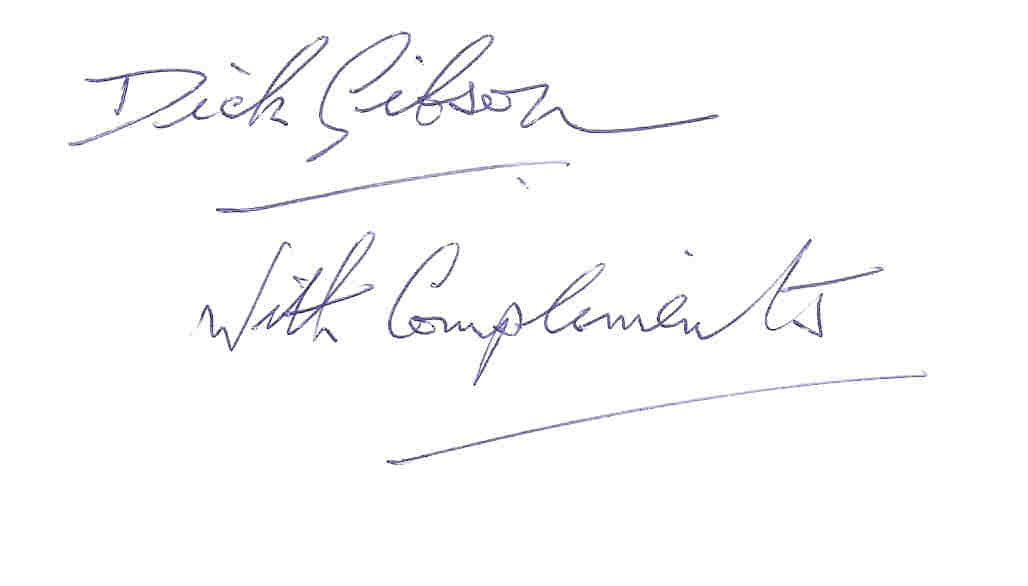 Dick Gibson
With Compliments